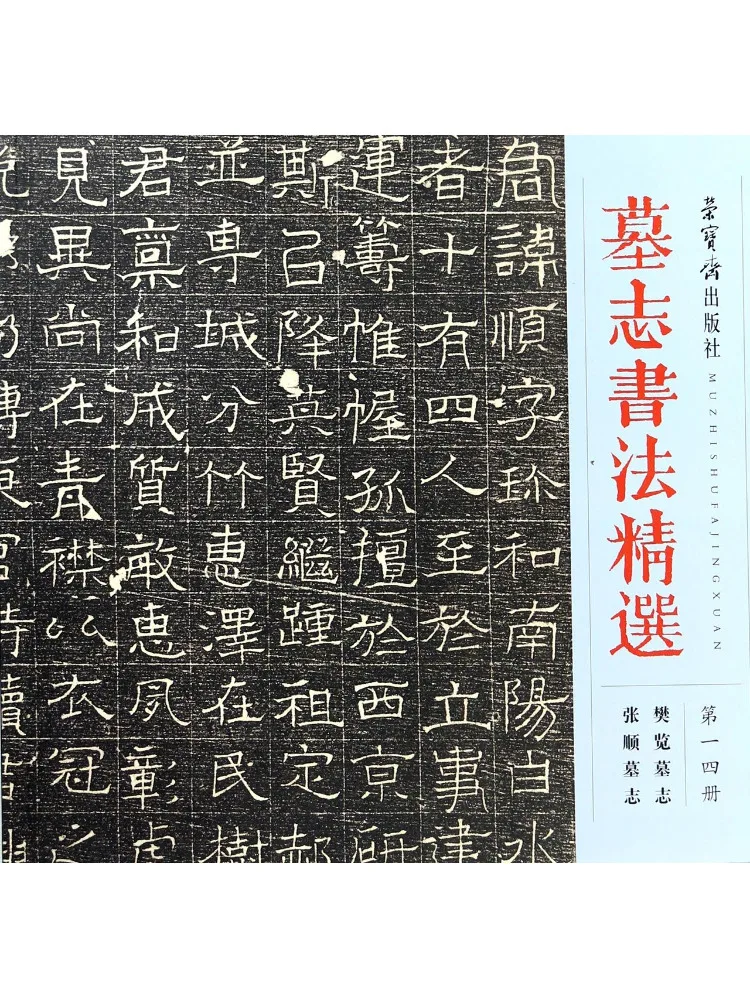 荣宝斋出版社
墓志書法精選
MUZHISHUFAJINGXUAN
第一四册
樊览墓志
张顺墓志
君諱順字珎和南陽白水
者十有四人至於立事建
運籌帷幄孤擅於西京
斯乃降英賢繼踵祖定郝
並専城分竹惠澤在民樹
君稟和成質敏惠夙彰
見異尚在青襟以衣冠之